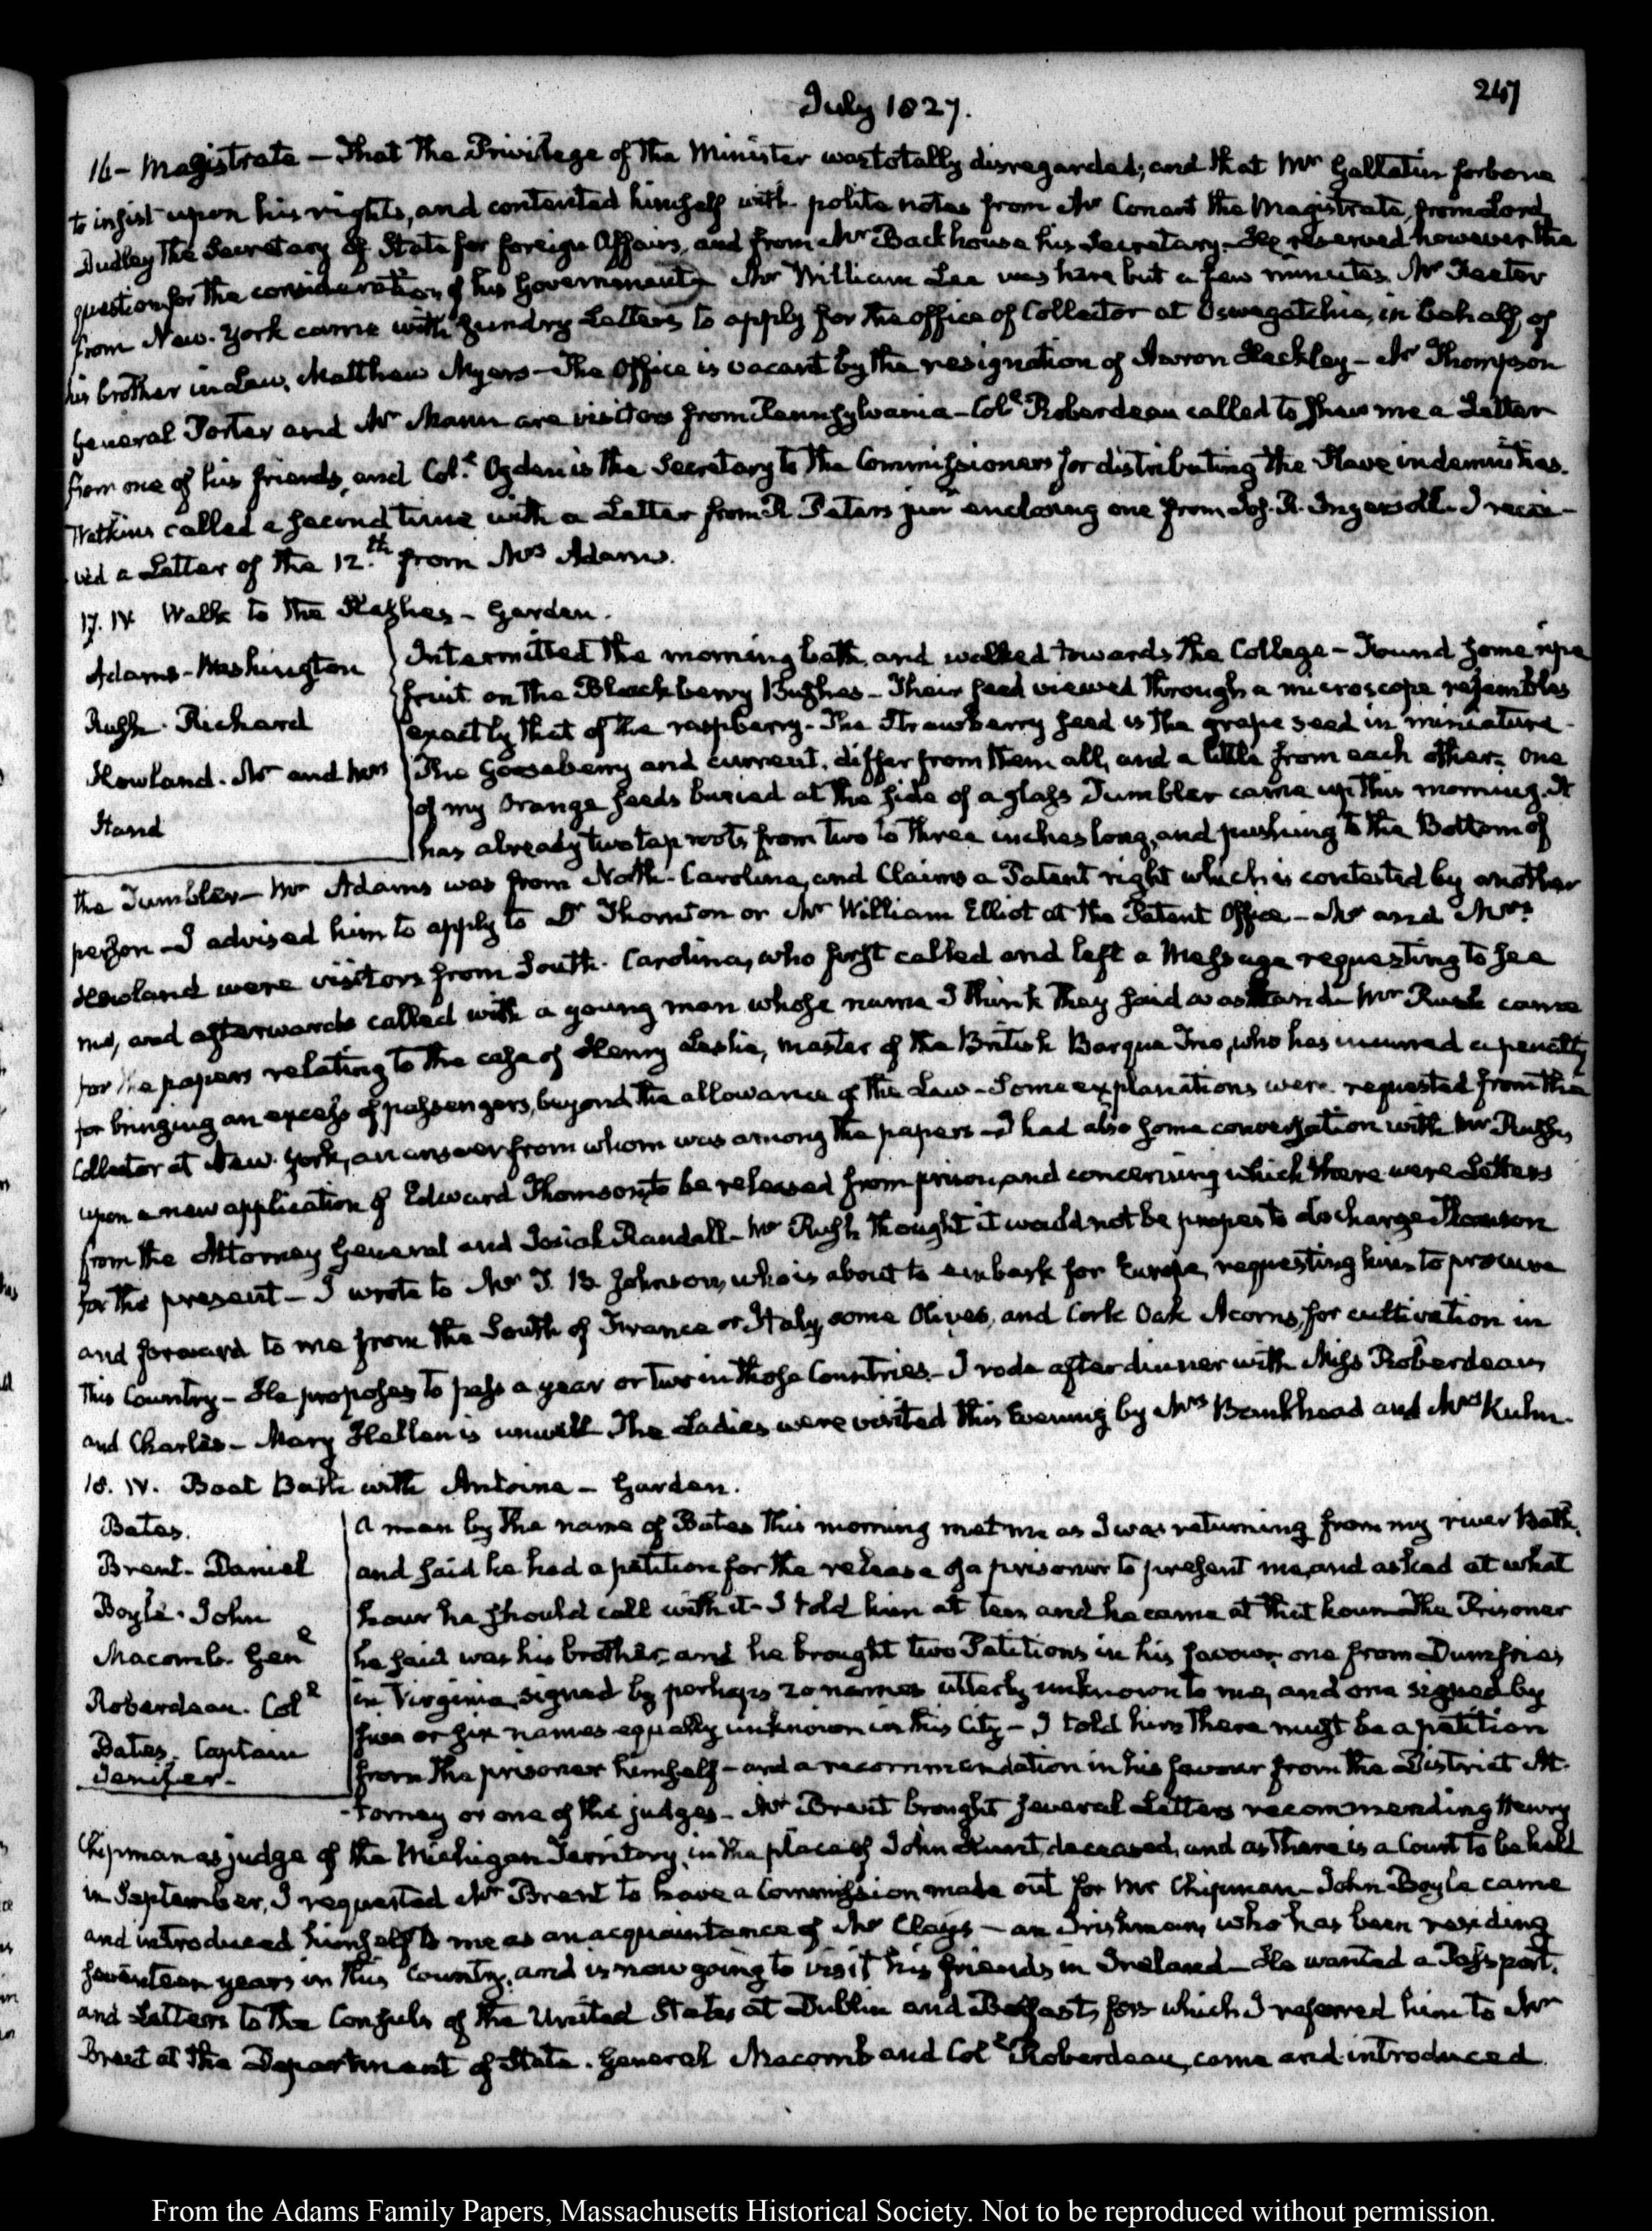 July 1827.
247
16 - Magistrate - That the Privilege of the Minister was totally disregarded; and that Mr Gallatin forbore
to insist upon his rights, and contented himself with polite notes from Mr Conant the Magistrate, from Lord
Dudley the Secretary of State for foreign Affairs, and from Mr Backhouse his Secretary. He reserved however the
question for the consideration of his Government - Mr William Lee was here but a few minutes. Mr
from New-York came with sundry Letters to apply for the office of Collector at Oswegatchie, in behalf of
his brother in Law, Matthew Myers - The Office is vacant by the resignation of Aaron Hackley - Mr Thompson
General Porter and Mr Mann are visitors from Pennsylvania - Coll Roberdeau called to shew me a Letter
from one of his friends, and Coll Ogden is the Secretary to the Commissioners for distributing the Slave indemnities.
Watkins called a second time with a Letter from R. Peters junr enclosing one from Jos. R. Ingersoll. I recei-
ved a Letter of the 12.th from Mrs Adams.
17. IV. Walk to the Slashes - Garden.
Adams - Washington
Rush. Richard
Howland. Mr and Mrs
Hand
Intermitted the morning bath, and walked towards the College - Found some ripe
fruit on the Blackberry Bushes - Their seed viewed through a microscope resembles
exactly that of the raspberry - The Strawberry seed is the grape seed in miniature -
The Gooseberry and current, differ from them all, and a little from each other. One
of my Orange seeds buried at the side of a glass Tumbler came up this morning. It
has already two tap roots from two to three inches long, and pushing to the Bottom of
the Tumbler - Mr Adams was from North-Carolina, and Claims a Patent right which is contested by another
person - I advised him to apply to Dr Thornton or Mr William Elliot at the Patent Office - Mr and Mrs
Howland were visitors from South-Carolina, who first called and left a Message requesting to see
me, and afterwards called with a young man whose name I think they said was Hand - Mr Rush came
for the papers relating to the case of Henry Leslie, master of the British Barque Trio, who has incurred a penalty
for bringing an excess of passengers, beyond the allowance of the Law - Some explanations were requested from the
Collector at New-York, an answer from whom was among the papers - I had also some conversation with Mr Rush,
upon a new application of Edward Thomson, to be released from prison, and concerning which there were Letters
from the Attorney General and Josiah Randall - Mr Rush thought it would not be proper to discharge Thomson
for the present - I wrote to Mr J. B. Johnson, who is about to embark for Europe, requesting him to procure
and forward to me from the South of France or Italy, some Olives, and Cork Oak Acorns, for cultivation in
this Country - He proposes to pass a year or two in those Countries - I rode after dinner with Miss Roberdeau,
and Charles - Mary Hellen is unwell. The Ladies were visited this Evening by Mrs Bankhead and Mrs Kuhn.
18. IV. Boat Bath with Antoine - Garden.
Bates.
Brent - Daniel
Boyle. John
Macomb. Genl
Roberdeau. Coll
Bates. Captain
Jenifer -
A man by the name of Bates this morning met me as I was returning from my river Bath,
and said he had a petition for the release of a prisoner to present me, and asked at what
hour he should call with it - I told him at ten and he came at that hour - The Prisoner
he said was his brother, and he brought two Petitions in his favour, one from Dumfries
in Virginia, signed by perhaps 20 names utterly unknown to me, and one signed by
five or six names equally unknown in this City - I told him there must be a petition
from the prisoner himself - and a recommendation in his favour from the District At-
-torney or one of the judges - Mr Brent brought several Letters recommending Henry
Chipman as judge of the Michigan Territory, in the place of John Hunt, deceased, and as there is a Court to be held
in September, I requested Mr Brent to have a Commission made out for Mr Chipman - John Boyle came
and introduced himself to me as an acquaintance of Mr Clay's - an Irishman, who has been residing
seventeen years in this Country, and is now going to visit his friends in Ireland - He wanted a Passport,
and Letters to the Consuls of the United States at Dublin and Belfast, for which I referred him to Mr
Brent at the Department of State. General Macomb and Coll Roberdeau, came and introduced
From the Adams Family Papers, Massachusetts Historical Society. Not to be reproduced without permission.